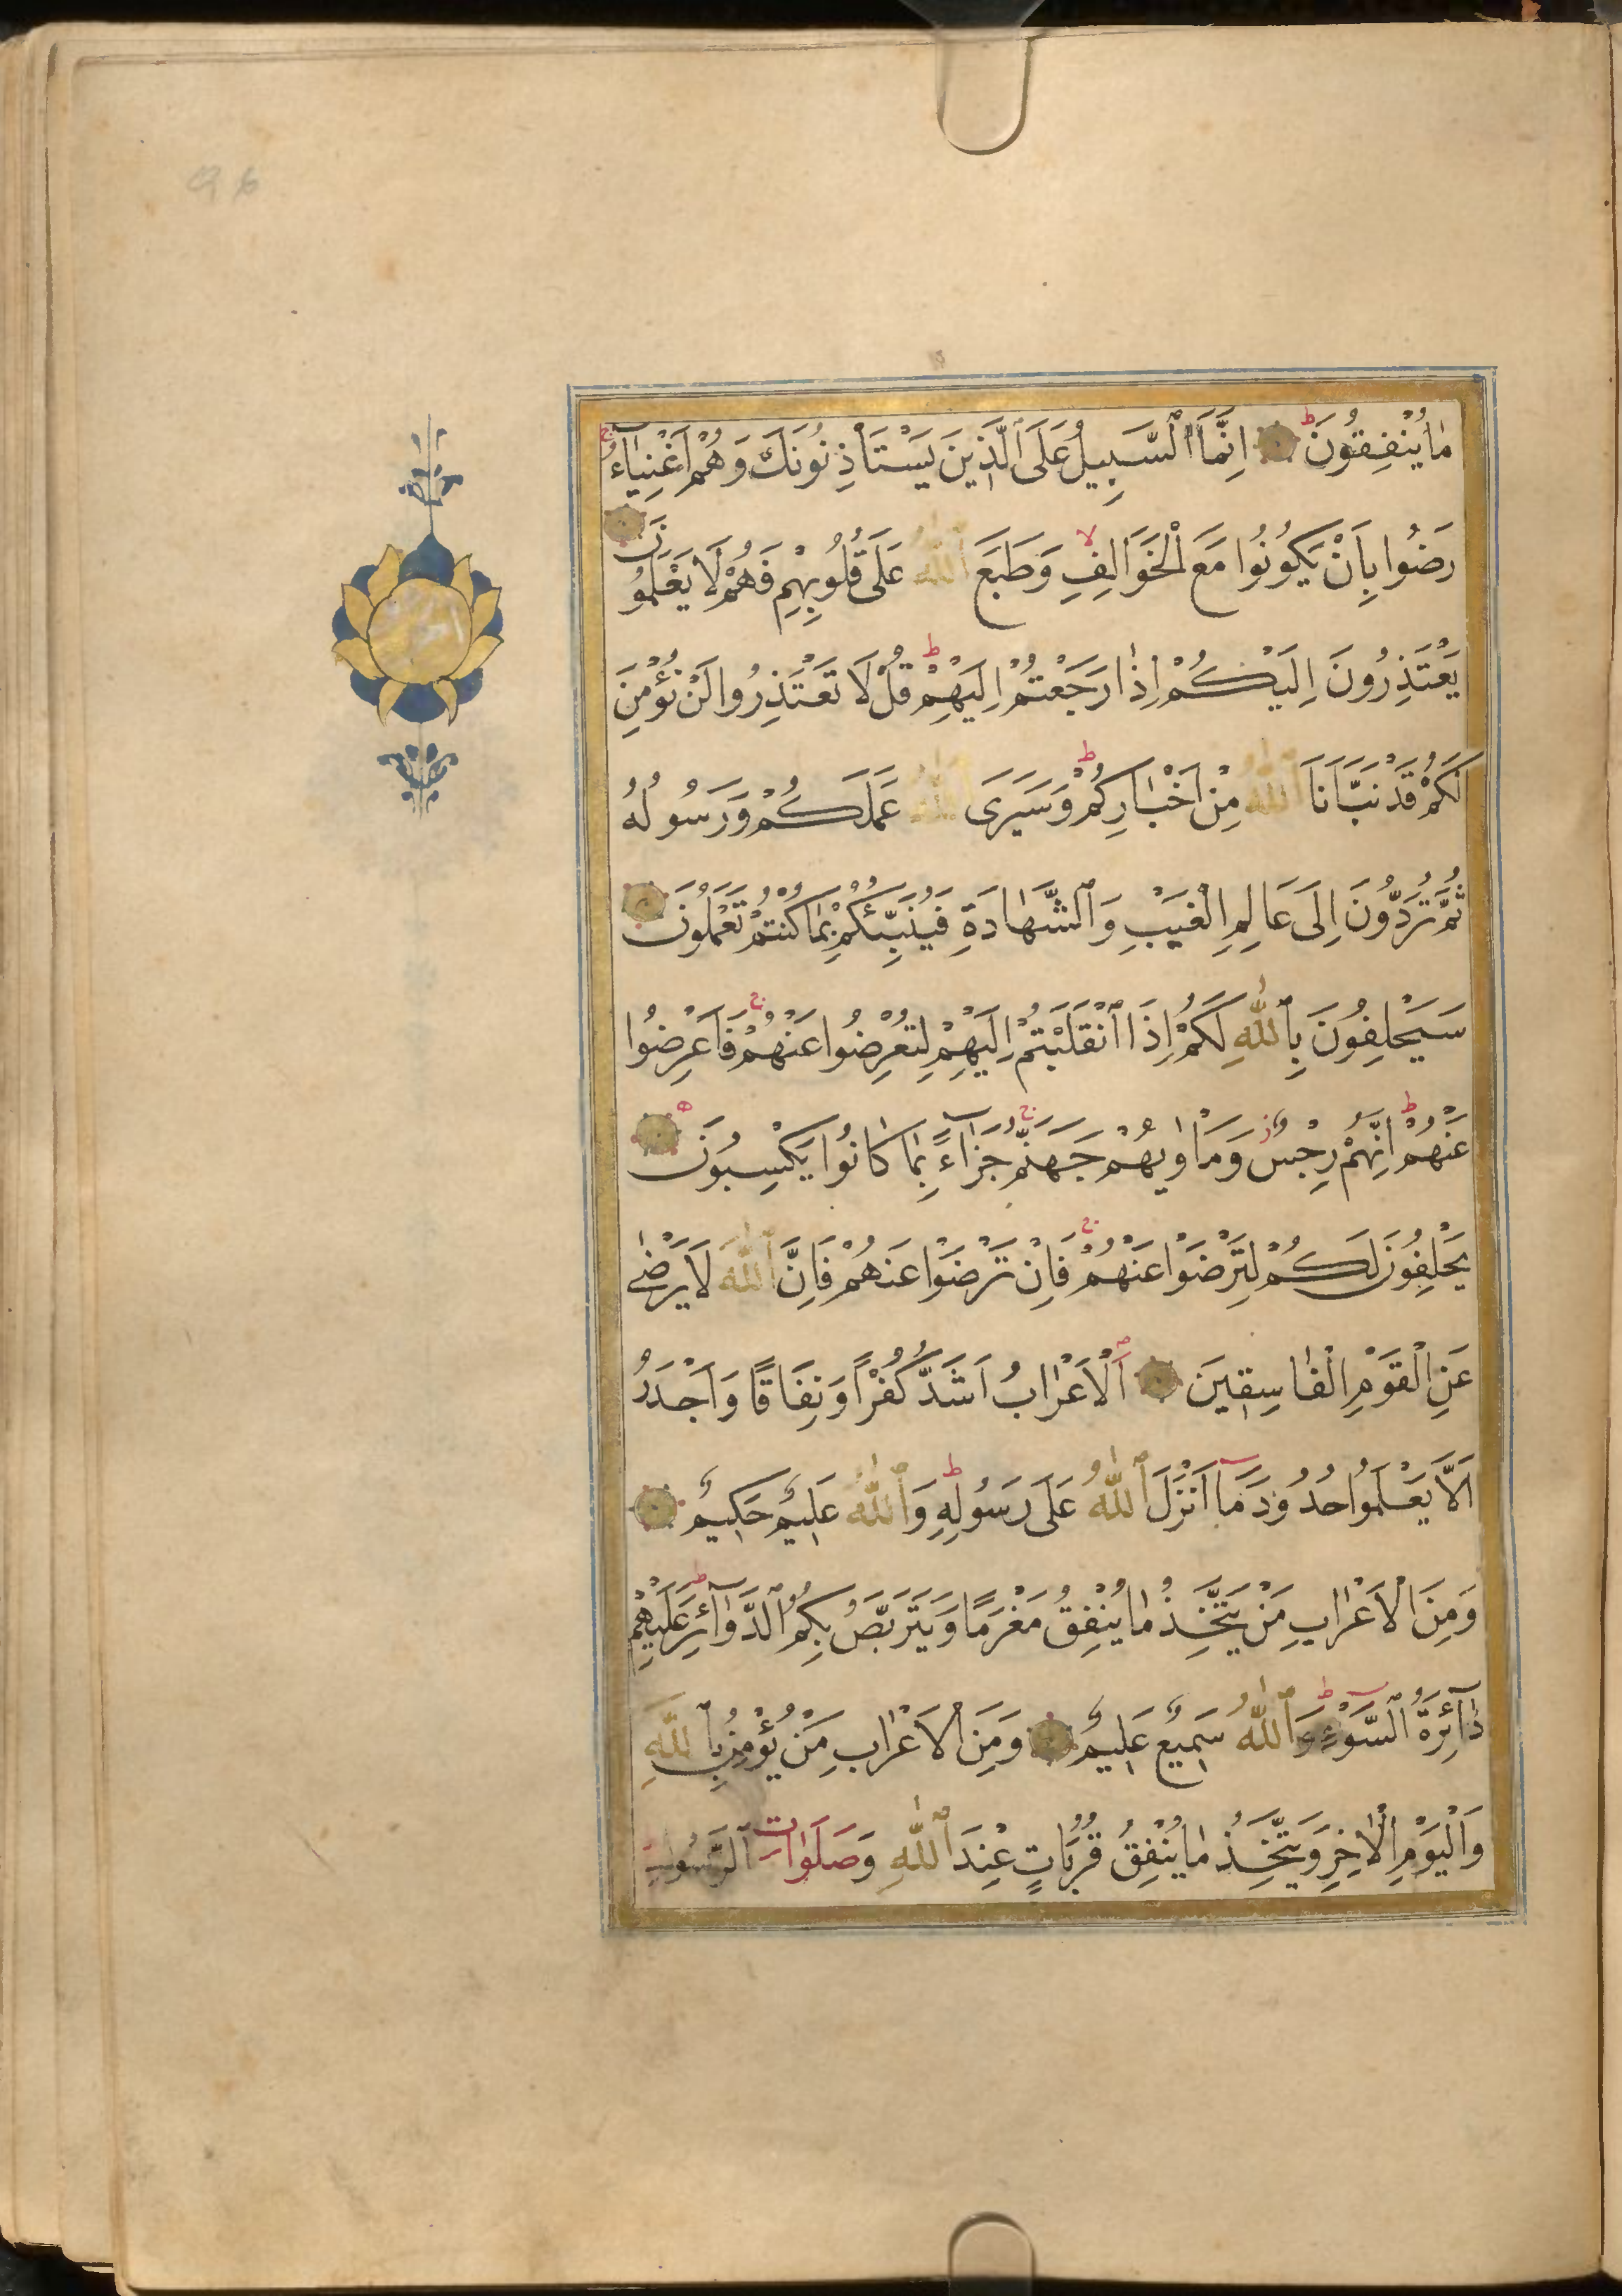 مَا يُنْفِقُونَ اِنَّمَا ٱلسَّبِيلُ عَلَى ٱلَّذِينَ يَسْتَأْذِنُونَكَ وَهُمْ اَغْنِيَآءُ
رَضُوا بِاَنْ يَكُونُوا مَعَ الْخَوَالِفِ وَطَبَعَ ٱللّٰهُ عَلَى قُلُوبِهِمْ فَهُمْ لَا يَعْلَمُونَ
يَعْتَذِرُونَ اِلَيْكُمْ اِذَا رَجَعْتُمْ اِلَيْهِمْ قُلْ لَا تَعْتَذِرُوا لَنْ نُؤْمِنَ
لَكُمْ قَدْ نَبَّاَنَا ٱللّٰهُ مِنْ اَخْبَارِكُمْ وَسَيَرَى ٱللّٰهُ عَمَلَكُمْ وَرَسُولُهُ
ثُمَّ تُرَدُّونَ اِلَى عَالِمِ الْغَيْبِ وَٱلشَّهَادَةِ فَيُنَبِّئُكُمْ بِمَا كُنْتُمْ تَعْمَلُونَ
سَيَحْلِفُونَ بِٱللّٰهِ لَكُمْ اِذَا ٱنْقَلَبْتُمْ اِلَيْهِمْ لِتُعْرِضُوا عَنْهُمْ فَاَعْرِضُوا
عَنْهُمْ اِنَّهُمْ رِجْسٌ وَمَاْوٰيهُمْ جَهَنَّمُ جَزَآءً بِمَا كَانُوا يَكْسِبُونَ
يَحْلِفُونَ لَكُمْ لِتَرْضَوْا عَنْهُمْ فَاِنْ تَرْضَوْا عَنْهُمْ فَاِنَّ ٱللّٰهَ لَا يَرْضٰى
عَنِ الْقَوْمِ الْفَاسِقِينَ اَلْاَعْرَابُ اَشَدُّ كُفْرًا وَنِفَاقًا وَاَجْدَرُ
اَلَّا يَعْلَمُوا حُدُودَ مَآ اَنْزَلَ ٱللّٰهُ عَلَى رَسُولِهِ وَٱللّٰهُ عَلِيمٌ حَكِيمٌ
وَمِنَ الْاَعْرَابِ مَنْ يَتَّخِذُ مَا يُنْفِقُ مَغْرَمًا وَيَتَرَبَّصُ بِكُمُ ٱلدَّوَآئِرَ عَلَيْهِمْ
دَآئِرَةُ ٱلسَّوْءِ وَٱللّٰهُ سَمِيعٌ عَلِيمٌ وَمِنَ الْاَعْرَابِ مَنْ يُؤْمِنُ بِٱللّٰهِ
وَالْيَوْمِ الْاٰخِرِ وَيَتَّخِذُ مَا يُنْفِقُ قُرُبَاتٍ عِنْدَ ٱللّٰهِ وَصَلَوَاتِ ٱلرَّسُولِ